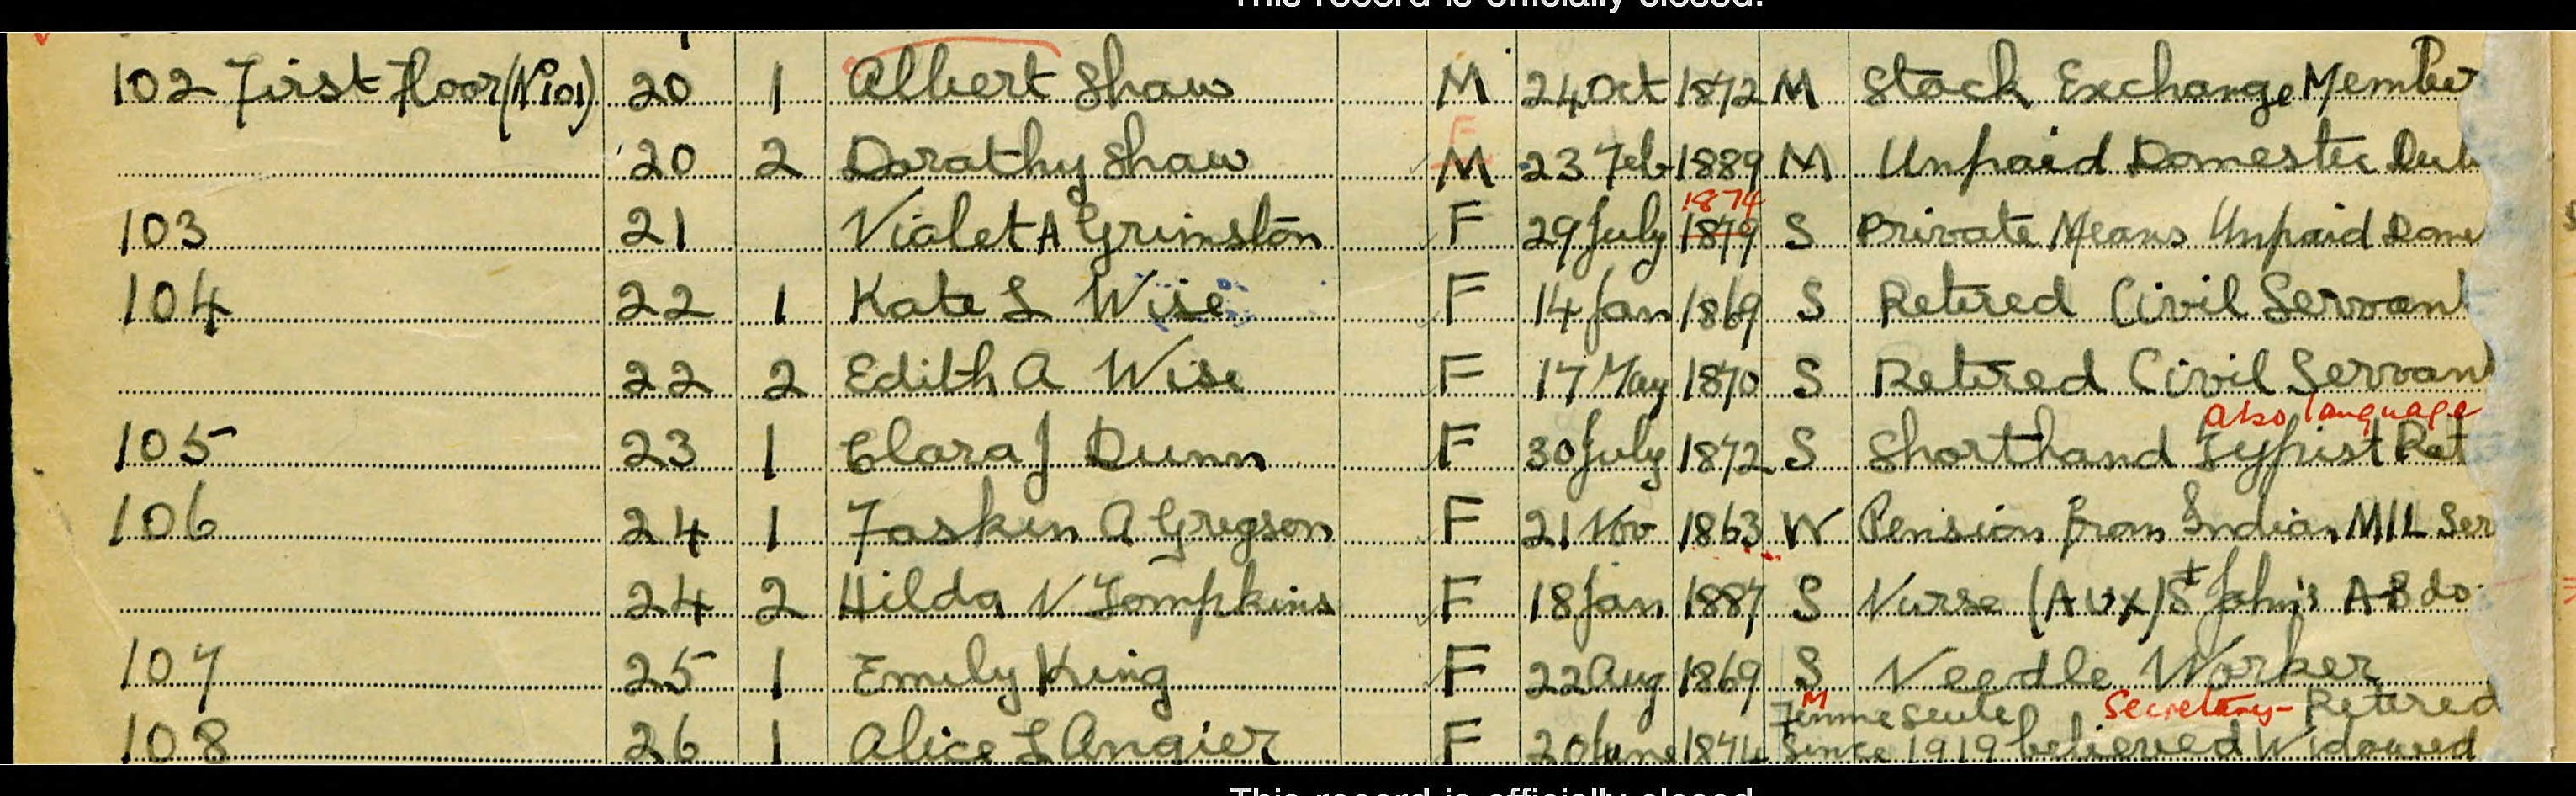 This record is officially closed.
102 First Floor (No 101) 20 1 Albert Shaw M 24 Oct 1872 M Stock Exchange Member
20 2 Dorathy Shaw F M 23 Feb 1889 M Unpaid Domestic Duti
1874
103 21 Violet A Grimston F 29 July 1879 S Private Means Unpaid Dome
104 22 1 Kate L Wise F 14 Jan 1869 S Retired Civil Servant
22 2 Edith A Wise F 17 May 1870 S Retired Civil Servant
also language
105 23 1 Clara J Dunn F 30 July 1872 S Shorthand Typist Ret
106 24 1 Faskin A Gregson F 21 Nov 1863 W Pension from Indian MIL Ser
24 2 Hilda V Tompkins F 18 Jan 1887 S Nurse (Aux) St John's A B do
107 25 1 Emily King F 22 Aug 1869 S Needle Worker
M Femme Seule Secretary - Retired
108 26 1 Alice L Angier F 20 June 1874 Since 1919 believed Widowed
This record is officially closed.